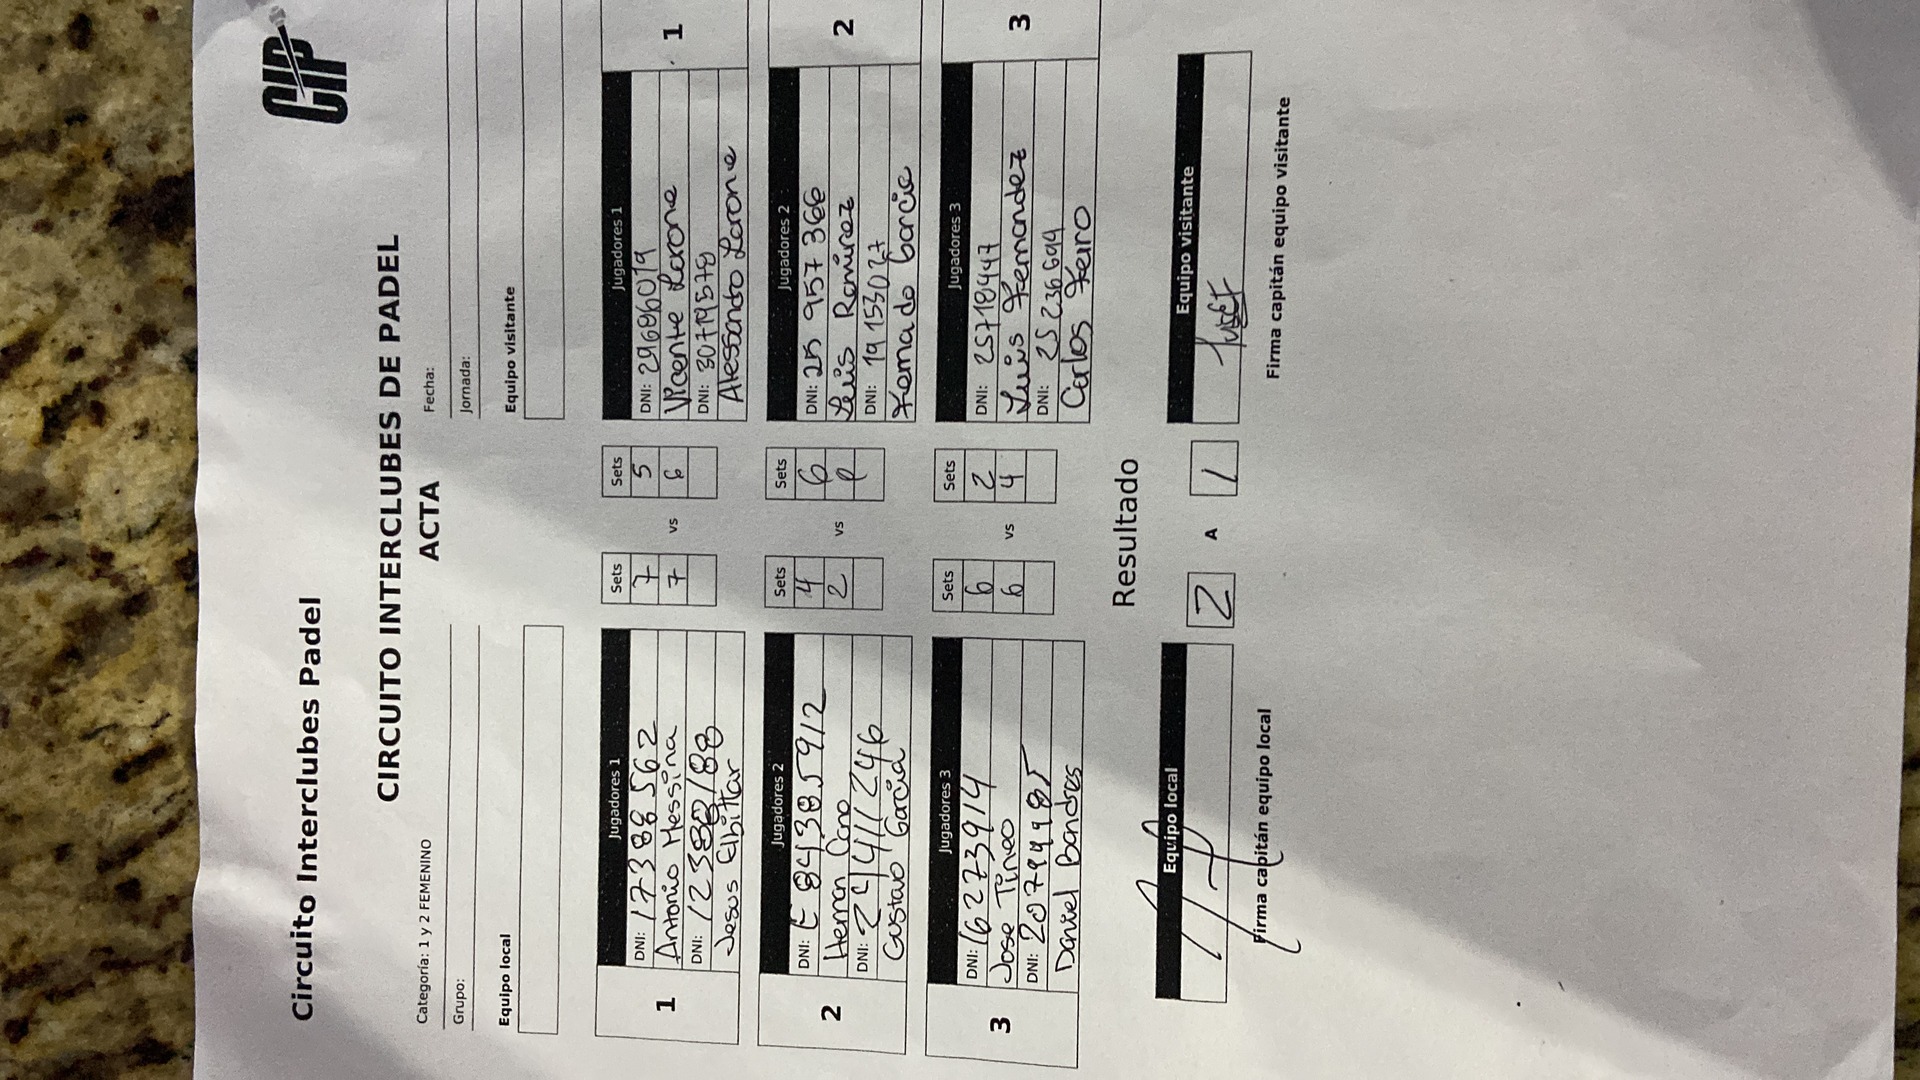 Circuito Interclubes Padel
CIP
CIRCUITO INTERCLUBES DE PADEL
ACTA
Categoría: 1 y 2 FEMENINO
Fecha:
Grupo:
Jornada:
Equipo local
Equipo visitante
1
Jugadores 1
Sets
Sets
Jugadores 1
1
DNI: 17388562
7
5
DNI: 29696019
Antonio Messina
7
vs
6
Vicente Larone
DNI:
DNI: 30719578
Jesus Elbittar
Alessandro Larone
2
Jugadores 2
Sets
Sets
Jugadores 2
2
DNI: E 84385912
4
6
DNI: 25 957 366
Hernan Cano
2
vs
Luis Ramirez
DNI: 24111246
DNI: 19153027
Gustavo Garcia
Fernando Garcia
3
Jugadores 3
Sets
Sets
Jugadores 3
3
DNI: 16273914
6
2
DNI: 25718447
Jose Tineo
6
vs
4
Luis Fernandez
DNI: 20794985
DNI: 25236694
Daniel Bandres
Carlos Feiro
Resultado
Equipo local
2
A
1
Equipo visitante
Firma capitán equipo local
Firma capitán equipo visitante